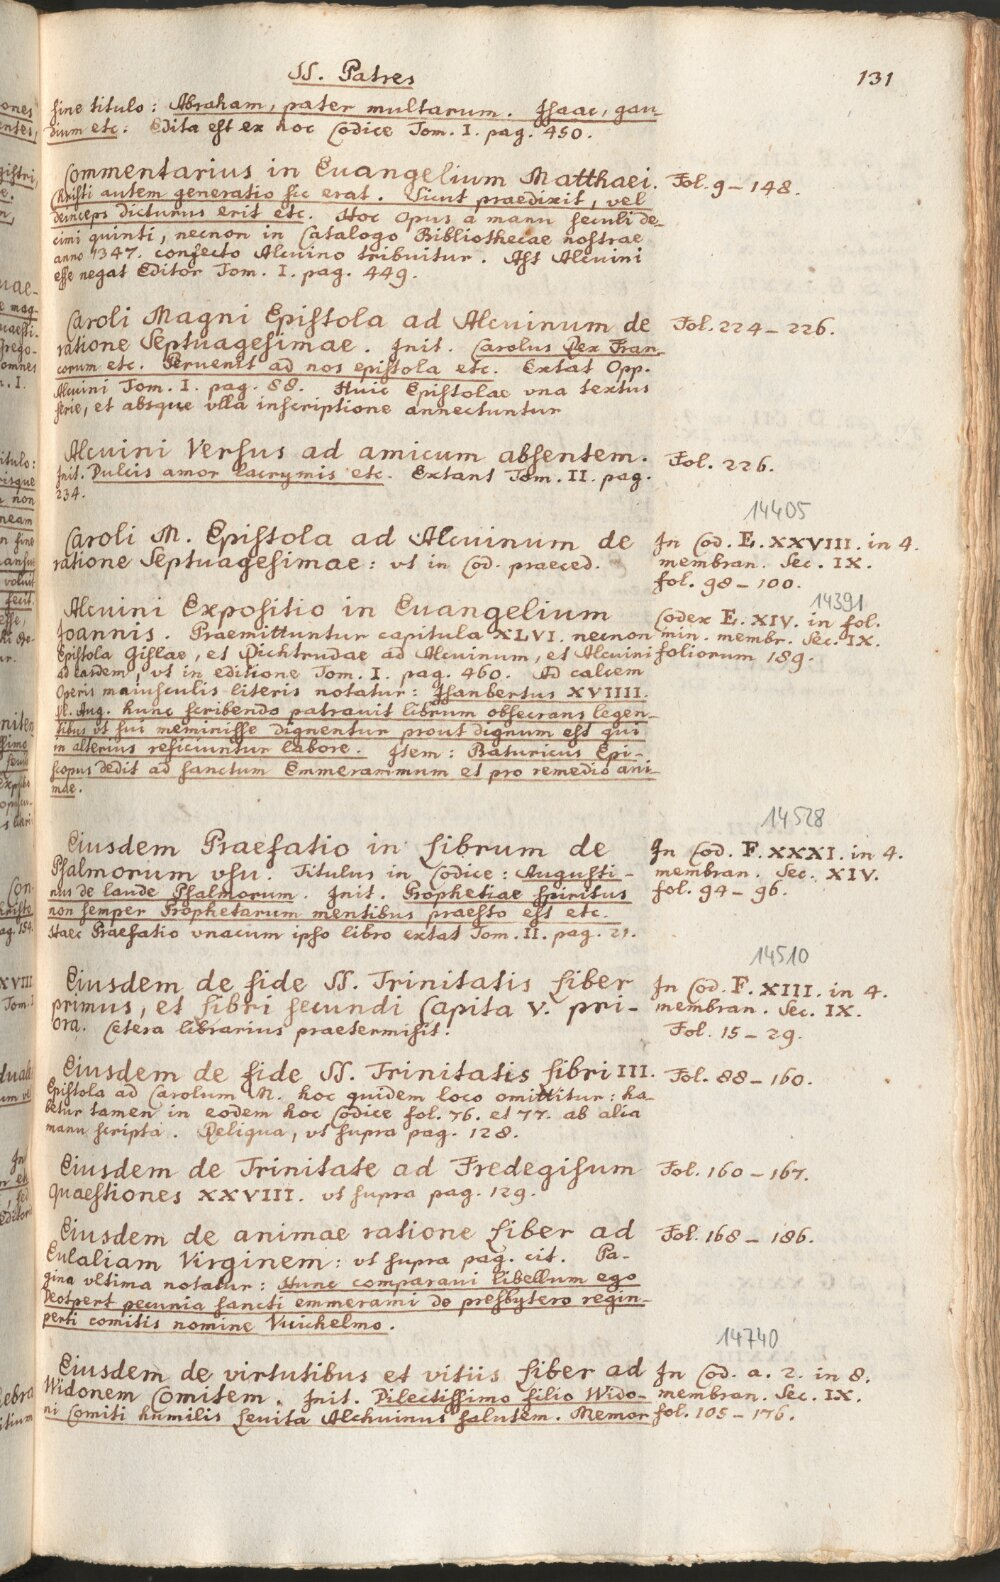 SS. Patres
131
sine titulo: Abraham, pater multarum. Isaac, gau-
dium etc: Edita est ex hoc Codice Tom. I. pag. 450.
Commentarius in Euangelium Matthaei.
Fol. 9 - 148.
Christi autem generatio sic erat. Sicut praedixit, vel
deinceps dicturus erit etc. Hoc opus a manu seculi de-
cimi quinti, necnon in Catalogo Bibliothecae nostrae
anno 1347. confecto Alcuino tribuitur. Ast Alcuini
esse negat Editor Tom. I. pag. 449.
Caroli Magni Epistola ad Alcuinum de
Fol. 224 - 226.
ratione Septuagesimae. Init. Carolus Rex Fran-
corum etc. Peruenit ad nos epistola etc. Extat Opp.
Alcuini Tom. I. pag. 88. Huic Epistolae vna textus
serie, et absque vlla inscriptione annectuntur
Alcuini Versus ad amicum absentem.
Fol. 226.
Init. Dulcis amor lacrymis etc. Extant Tom. II. pag.
234.
14405
Caroli M. Epistola ad Alcuinum de
In Cod. E. XXVIII. in 4.
ratione Septuagesimae: vt in Cod. praeced.
membran. Sec. IX.
fol. 98 - 100.
14391
Alcuini Expositio in Euangelium
Codex E. XIV. in fol.
Joannis. Praemittuntur capitula XLVI. necnon
min. membr. Sec. IX.
Epistola Gislae, et Richtrudae ad Alcuinum, et Alcuini
foliorum 189.
ad easdem, vt in editione Tom. I. pag. 460. Ad calcem
Operis maiusculis literis notatur: Isanbertus XVIIII.
kl. Aug. hunc scribendo patrauit librum obsecrans legen-
tibus vt sui meminisse dignentur prout dignum est qui
in alterius reficiuntur labore. Item: Baturicus Epi-
scopus dedit ad sanctum Emmerammum et pro remedio ani-
mae.
14528
Eiusdem Praefatio in Librum de
In Cod. F. XXXI. in 4.
Psalmorum vsu. Titulus in Codice: Augusti-
membran. Sec. XIV.
nus de laude Psalmorum. Init. Prophetiae spiritus
fol. 94 - 96.
non semper Prophetarum mentibus praesto est etc.
Haec Praefatio vnacum ipso libro extat Tom. II. pag. 21.
14510
Eiusdem de fide SS. Trinitatis Liber
In Cod. F. XIII. in 4.
primus, et Libri secundi Capita V. pri-
membran. Sec. IX.
ora. Cetera librarius praetermisit.
Fol. 15 - 29.
Eiusdem de fide SS. Trinitatis Libri III.
Fol. 88 - 160.
Epistola ad Carolum M. hoc quidem loco omittitur: ha-
betur tamen in eodem hoc Codice fol. 76. et 77. ab alia
manu scripta. Reliqua, vt supra pag. 128.
Eiusdem de Trinitate ad Fredegisum
Fol. 160 - 167.
Quaestiones XXVIII. vt supra pag. 129.
Eiusdem de animae ratione Liber ad
Fol. 168 - 186.
Eulaliam Virginem: vt supra pag. cit. Pa-
gina vltima notatur: Hunc comparaui libellum ego
Deotpert pecunia sancti emmerami de presbytero regin-
perti comitis nomine Vuichelmo.
14740
Eiusdem de virtutibus et vitiis Liber ad
In Cod. a. 2. in 8.
Widonem Comitem. Init. Dilectissimo filio Wido-
membran. Sec. IX.
ni Comiti humilis Leuita Alchuinus salutem. Memor
fol. 105 - 176.